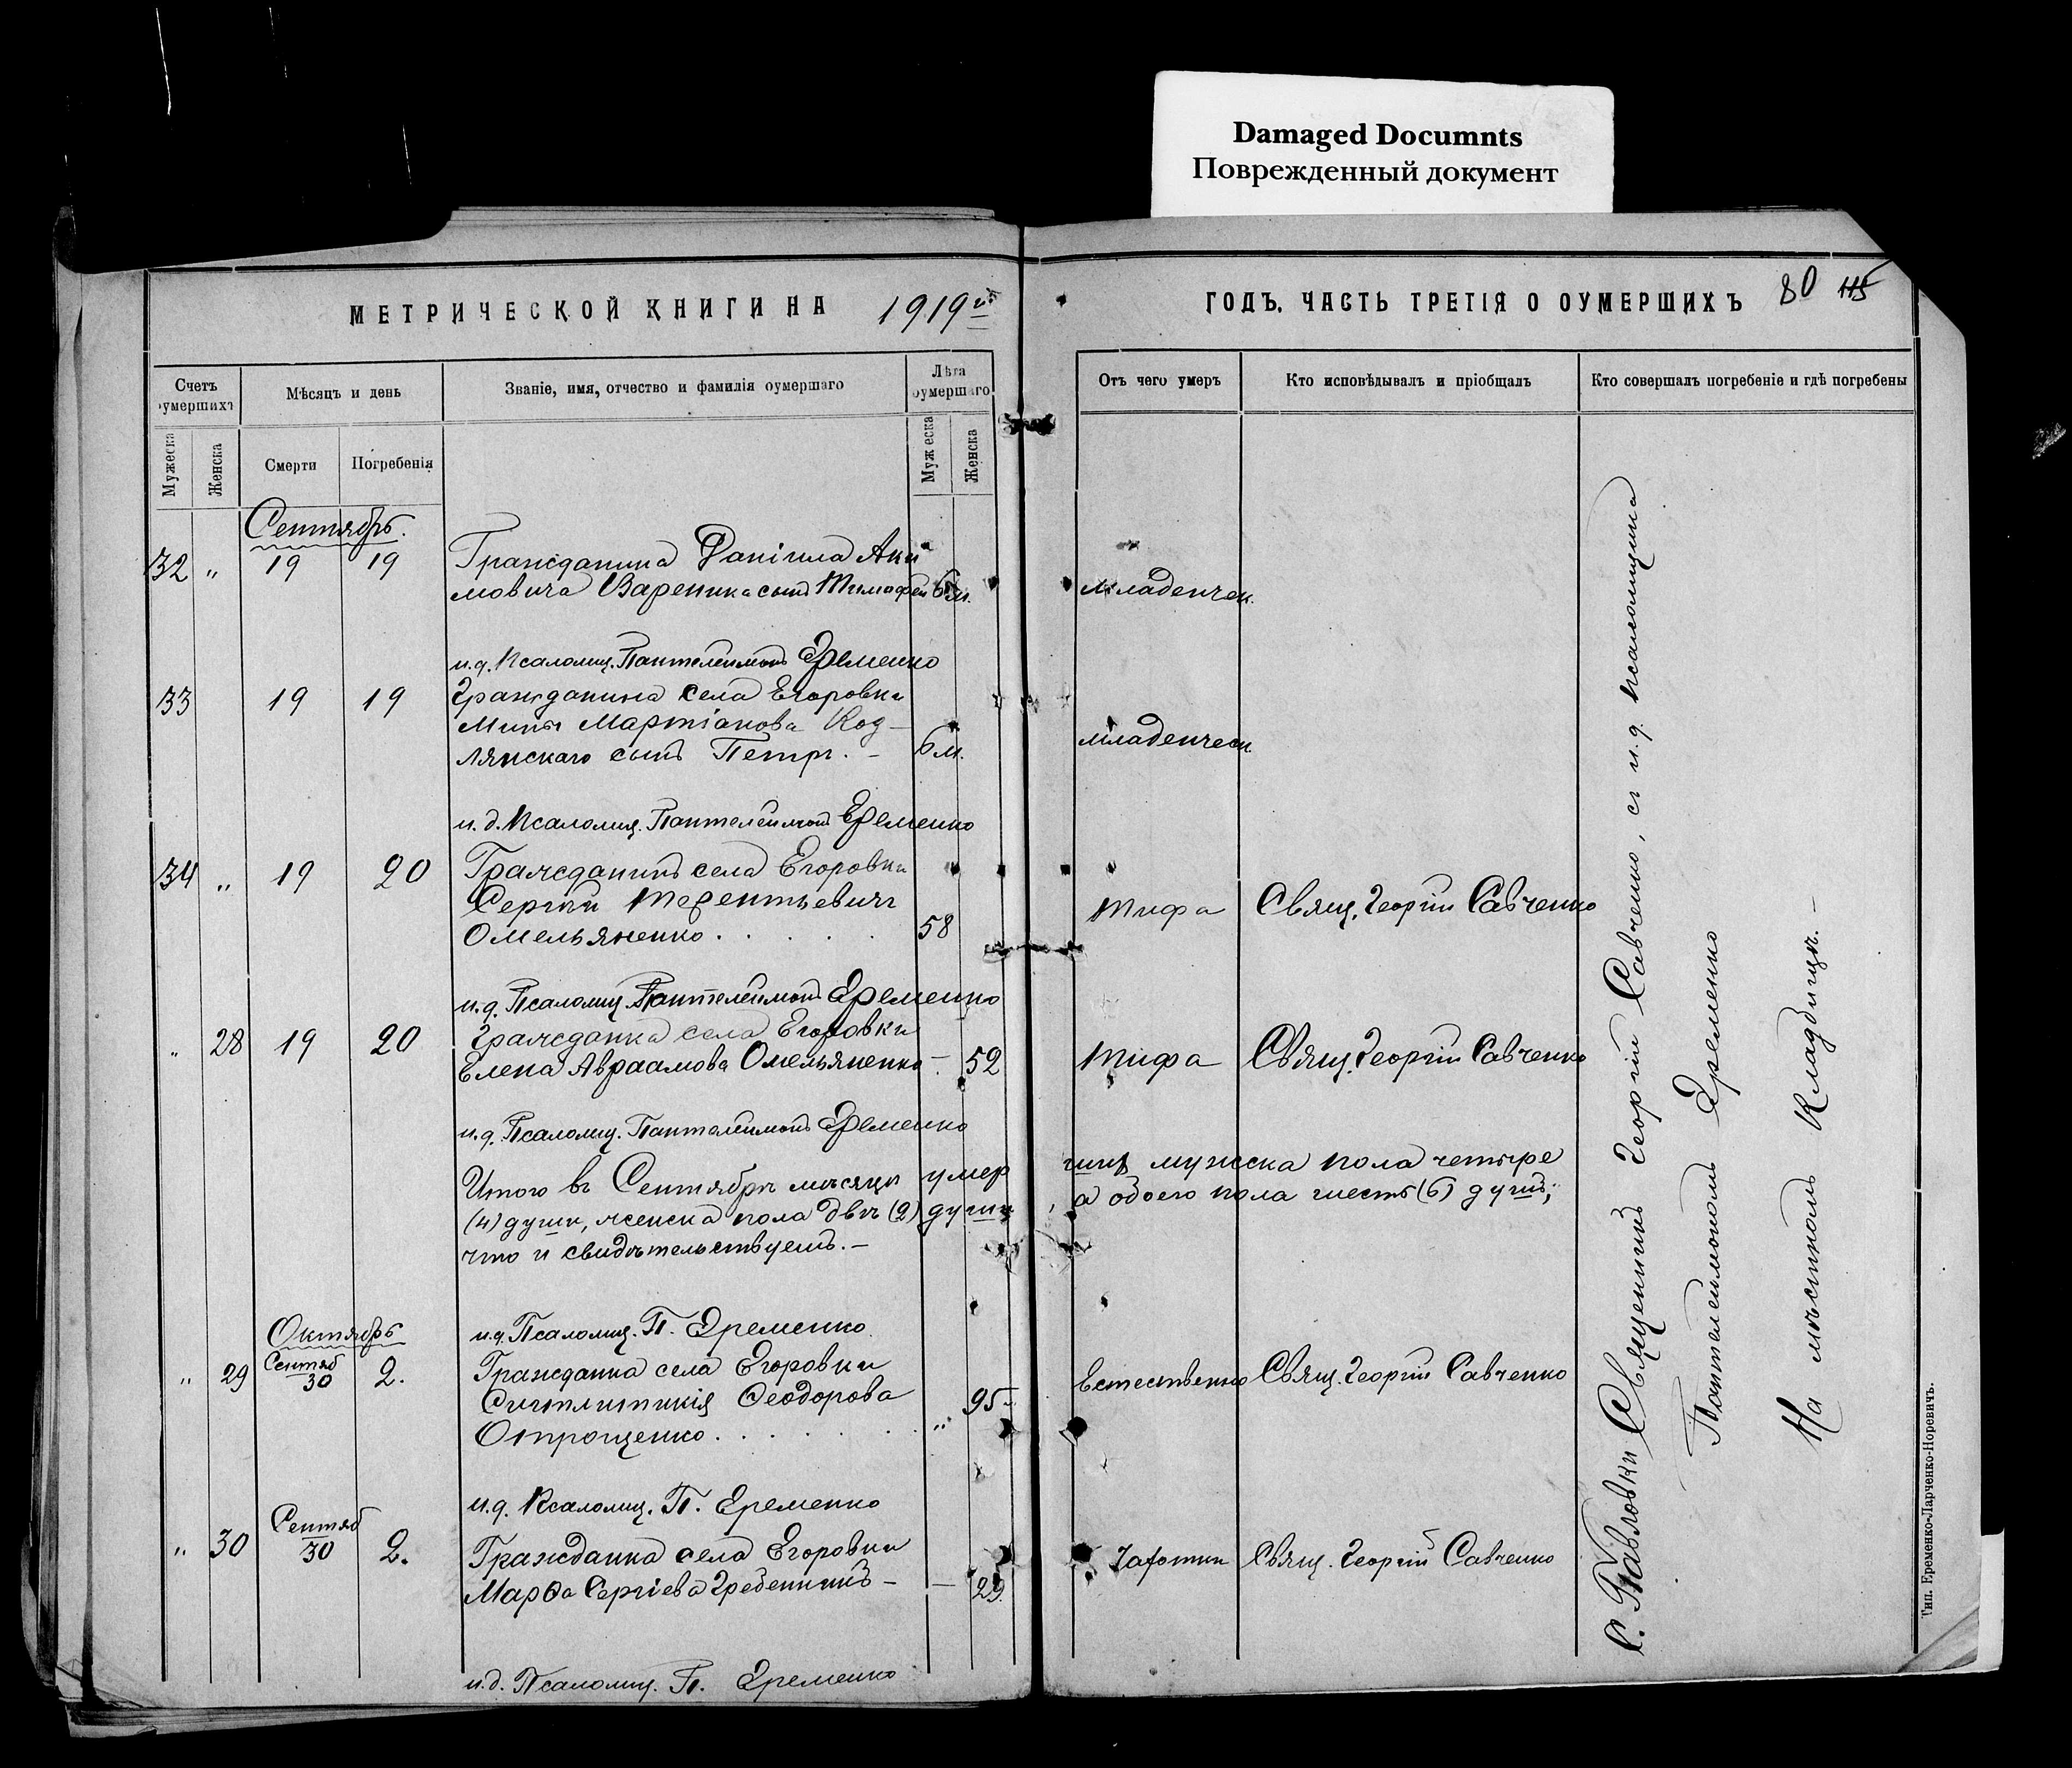 Damaged Documnts
Поврежденный документ
МЕТРИЧЕСКОЙ КНИГИ НА 1919й
ГОДЪ. ЧАСТЬ ТРЕТІЯ О ОУМЕРШИХЪ
80 115
Счетъ оумершихъ
Мѣсяцъ и день
Званіе, имя, отчество и фамилія оумершаго
Лѣта оумершаго
Отъ чего умеръ
Кто исповѣдывалъ и пріобщалъ
Кто совершалъ погребеніе и гдѣ погребены
Мужеска Женска Смерти Погребенія Мужеска Женска
Сентябрь.
32 „ 19 19 Гражданина Даніила Аки
мовича Вареника сынъ Тимофей 6 м. младенчек.
и.д. Псаломщ. Пантелеимонъ Еременко
33 19 19 Гражданина села Егоровки
Мины Мартіанова Код-
лянскаго сынъ Петръ. – 6 м. младенческ.
и.д. Псаломщ. Пантелеимонъ Еременко
34 „ 19 20 Гражданинъ села Егоровки
Сергій Терентьевичъ
Омельяненко. 58 Тифа Свящ. Георгій Савченко
и.д. Псаломщ. Пантелеимонъ Еременко
„ 28 19 20 Гражданка села Егоровки
Елена Авраамова Омельяненко – 52 Тифа Свящ. Георгій Савченко
и.д. Псаломщ. Пантелеимонъ Еременко
Итого въ Сентябрѣ мѣсяцѣ умер шихъ мужска пола четыре
(4) души, женска пола двѣ (2) души, а обоего пола шесть (6) душъ;
что и свидѣтельствуемъ. –
и.д. Псаломщ. П. Еременко
Октябрь
„ 29 Сентяб 30 2. Гражданка села Егоровки
Синклитикія Ѳеодорова
Отрощенко. „ 95 Естественно Свящ. Георгій Савченко
и.д. Псаломщ. П. Еременко
„ 30 Сентяб 30 2. Гражданка села Егоровки
Марѳа Сергіева Гребенникъ – – 29 Чахотки Свящ. Георгій Савченко
и.д. Псаломщ. П. Еременко
С. Павловки Священникъ Георгій Савченко, съ и.д. псаломщика
Пантелеимономъ Еременко
На мѣстномъ Кладбищѣ. –
Тип. Еременко-Ларченко-Норевичъ.